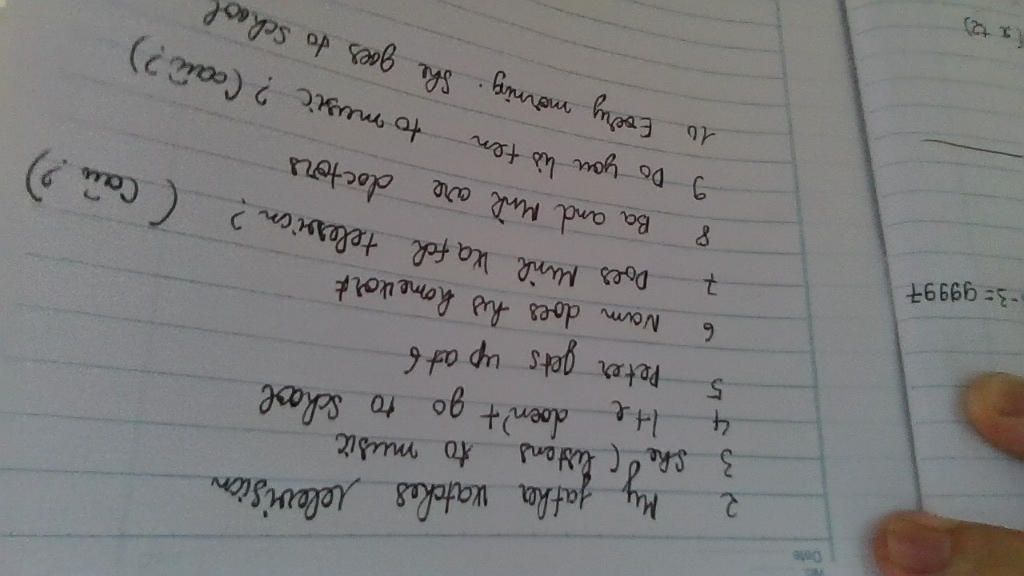 Date
2 My father watches television
3 She listens to music
4 He doen't go to school
5 Peter gets up at 6
6 Nam does his homework
7 Does Minh watch television? (Câu?)
8 Ba and Minh are doctors
9 Do you listen to music? (câu?)
10 Every morning. She goes to school
-3 = 99997